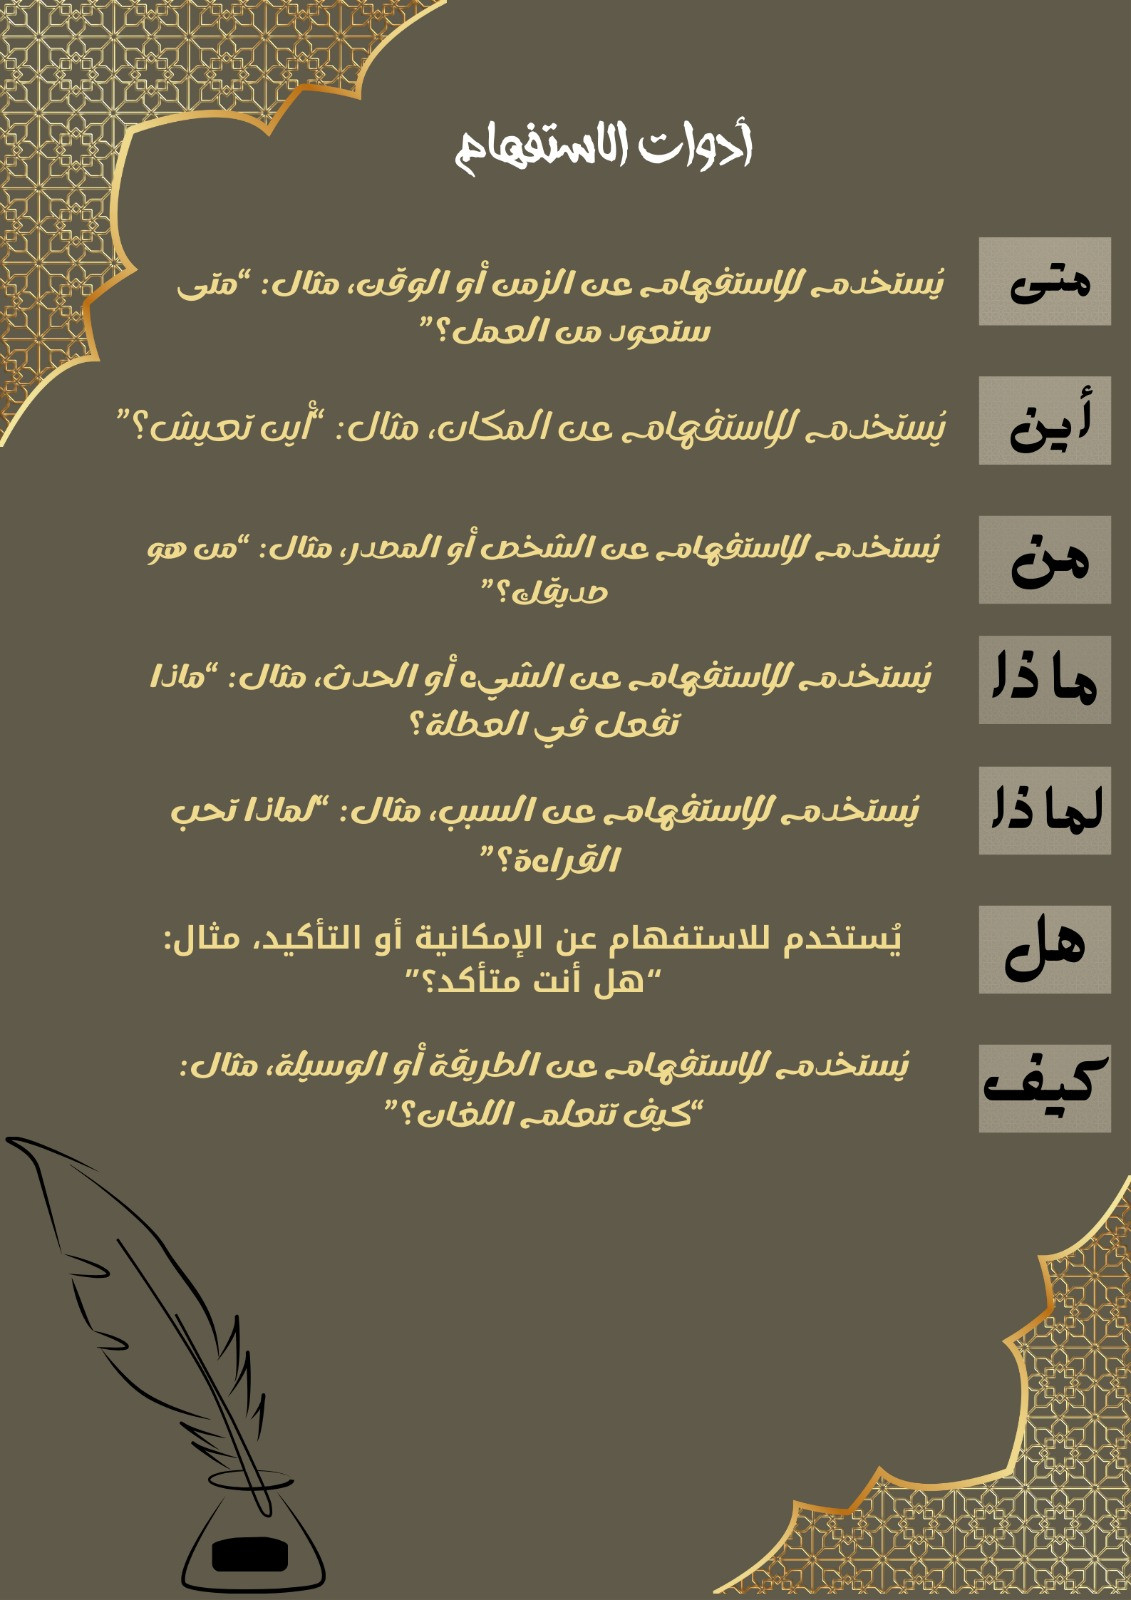 أدوات الاستفهام
متى
يُستخدم للإستفهام عن الزمن أو الوقت، مثال: “متى
ستعود من العمل؟”
أين
يُستخدم للإستفهام عن المكان، مثال: “أين تعيش؟”
من
يُستخدم للإستفهام عن الشخص أو المصدر، مثال: “من هو
صديقك؟”
ماذا
يُستخدم للإستفهام عن الشيء أو الحدث، مثال: “ماذا
تفعل في العطلة؟
لماذا
يُستخدم للإستفهام عن السبب، مثال: “لماذا تحب
القراءة؟”
هل
يُستخدم للاستفهام عن الإمكانية أو التأكيد، مثال:
“هل أنت متأكد؟”
كيف
يُستخدم للإستفهام عن الطريقة أو الوسيلة، مثال:
“كيف تتعلم اللغات؟”